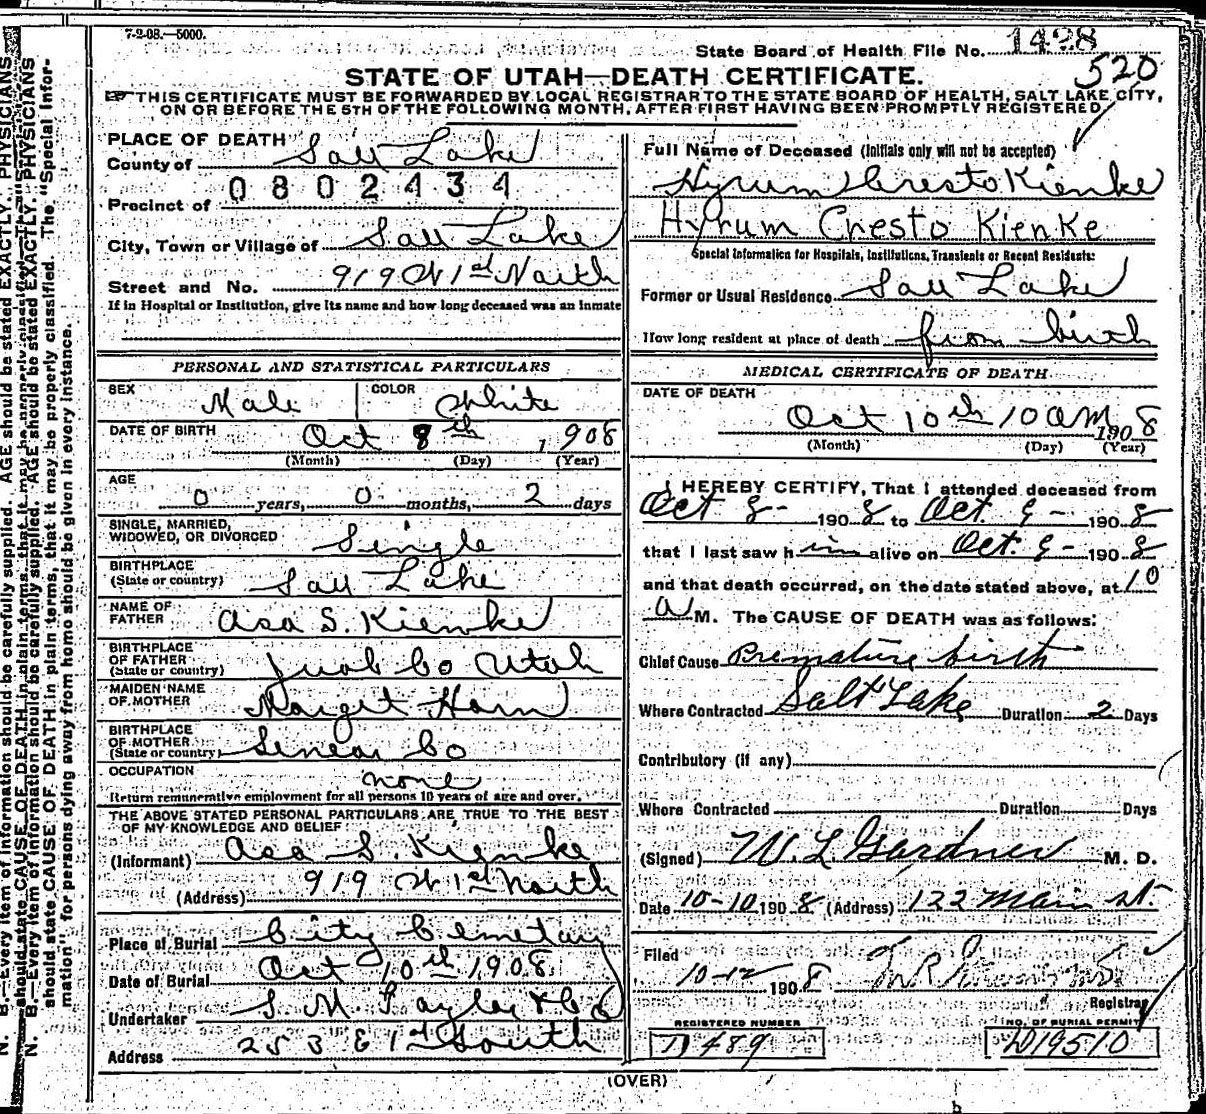 7-2-08.—5000.
State Board of Health File No. 1428
520
STATE OF UTAH—DEATH CERTIFICATE.
THIS CERTIFICATE MUST BE FORWARDED BY LOCAL REGISTRAR TO THE STATE BOARD OF HEALTH, SALT LAKE CITY,
ON OR BEFORE THE 5TH OF THE FOLLOWING MONTH, AFTER FIRST HAVING BEEN PROMPTLY REGISTERED.
PLACE OF DEATH
County of Salt Lake
0802434
Precinct of
City, Town or Village of Salt Lake
Street and No. 919 W 1st North
If in Hospital or Institution, give its name and how long deceased was an inmate
PERSONAL AND STATISTICAL PARTICULARS
SEX Male COLOR White
DATE OF BIRTH Oct 8th, 1908
(Month) (Day) (Year)
AGE
0 years, 0 months, 2 days
SINGLE, MARRIED,
WIDOWED, OR DIVORCED Single
BIRTHPLACE
(State or country) Salt Lake
NAME OF
FATHER Asa S. Kienke
BIRTHPLACE
OF FATHER
(State or country) Juab Co Utah
MAIDEN NAME
OF MOTHER Margret Ham
BIRTHPLACE
OF MOTHER
(State or country) Co
OCCUPATION none
Return remunerative employment for all persons 10 years of age and over.
THE ABOVE STATED PERSONAL PARTICULARS ARE TRUE TO THE BEST
OF MY KNOWLEDGE AND BELIEF
(Informant) Asa S. Kienke
(Address) 919 W 1st North
Place of Burial City Cemetary
Date of Burial Oct 10th 1908
Undertaker S. M. Tayler & Co
Address 253 E 1st South
Full Name of Deceased (Initials only will not be accepted)
Hyrum Cresto Kienke
Hyrum Cresto Kienke
Special Information for Hospitals, Institutions, Transients or Recent Residents:
Former or Usual Residence Salt Lake
How long resident at place of death from birth
MEDICAL CERTIFICATE OF DEATH
DATE OF DEATH
Oct 10th 10 AM 1908
(Month) (Day) (Year)
I HEREBY CERTIFY, That I attended deceased from
Oct 8- 1908 to Oct. 9- 1908
that I last saw him alive on Oct. 9- 1908
and that death occurred, on the date stated above, at 10
A M. The CAUSE OF DEATH was as follows:
Chief Cause Premature birth
Where Contracted Salt Lake Duration 2 Days
Contributory (if any)
Where Contracted Duration Days
(Signed) W. L. Gardner M. D.
Date 10-10 1908 (Address) 122 Main st.
Filed
10-12 1908
Registrar
REGISTERED NUMBER
D 489
NO. OF BURIAL PERMIT
D19510
(OVER)
N. B.—Every item of information should be carefully supplied. AGE should be stated EXACTLY. PHYSICIANS
should state CAUSE OF DEATH in plain terms, that it may be properly classified. The "Special Infor-
mation" for persons dying away from home should be given in every instance.